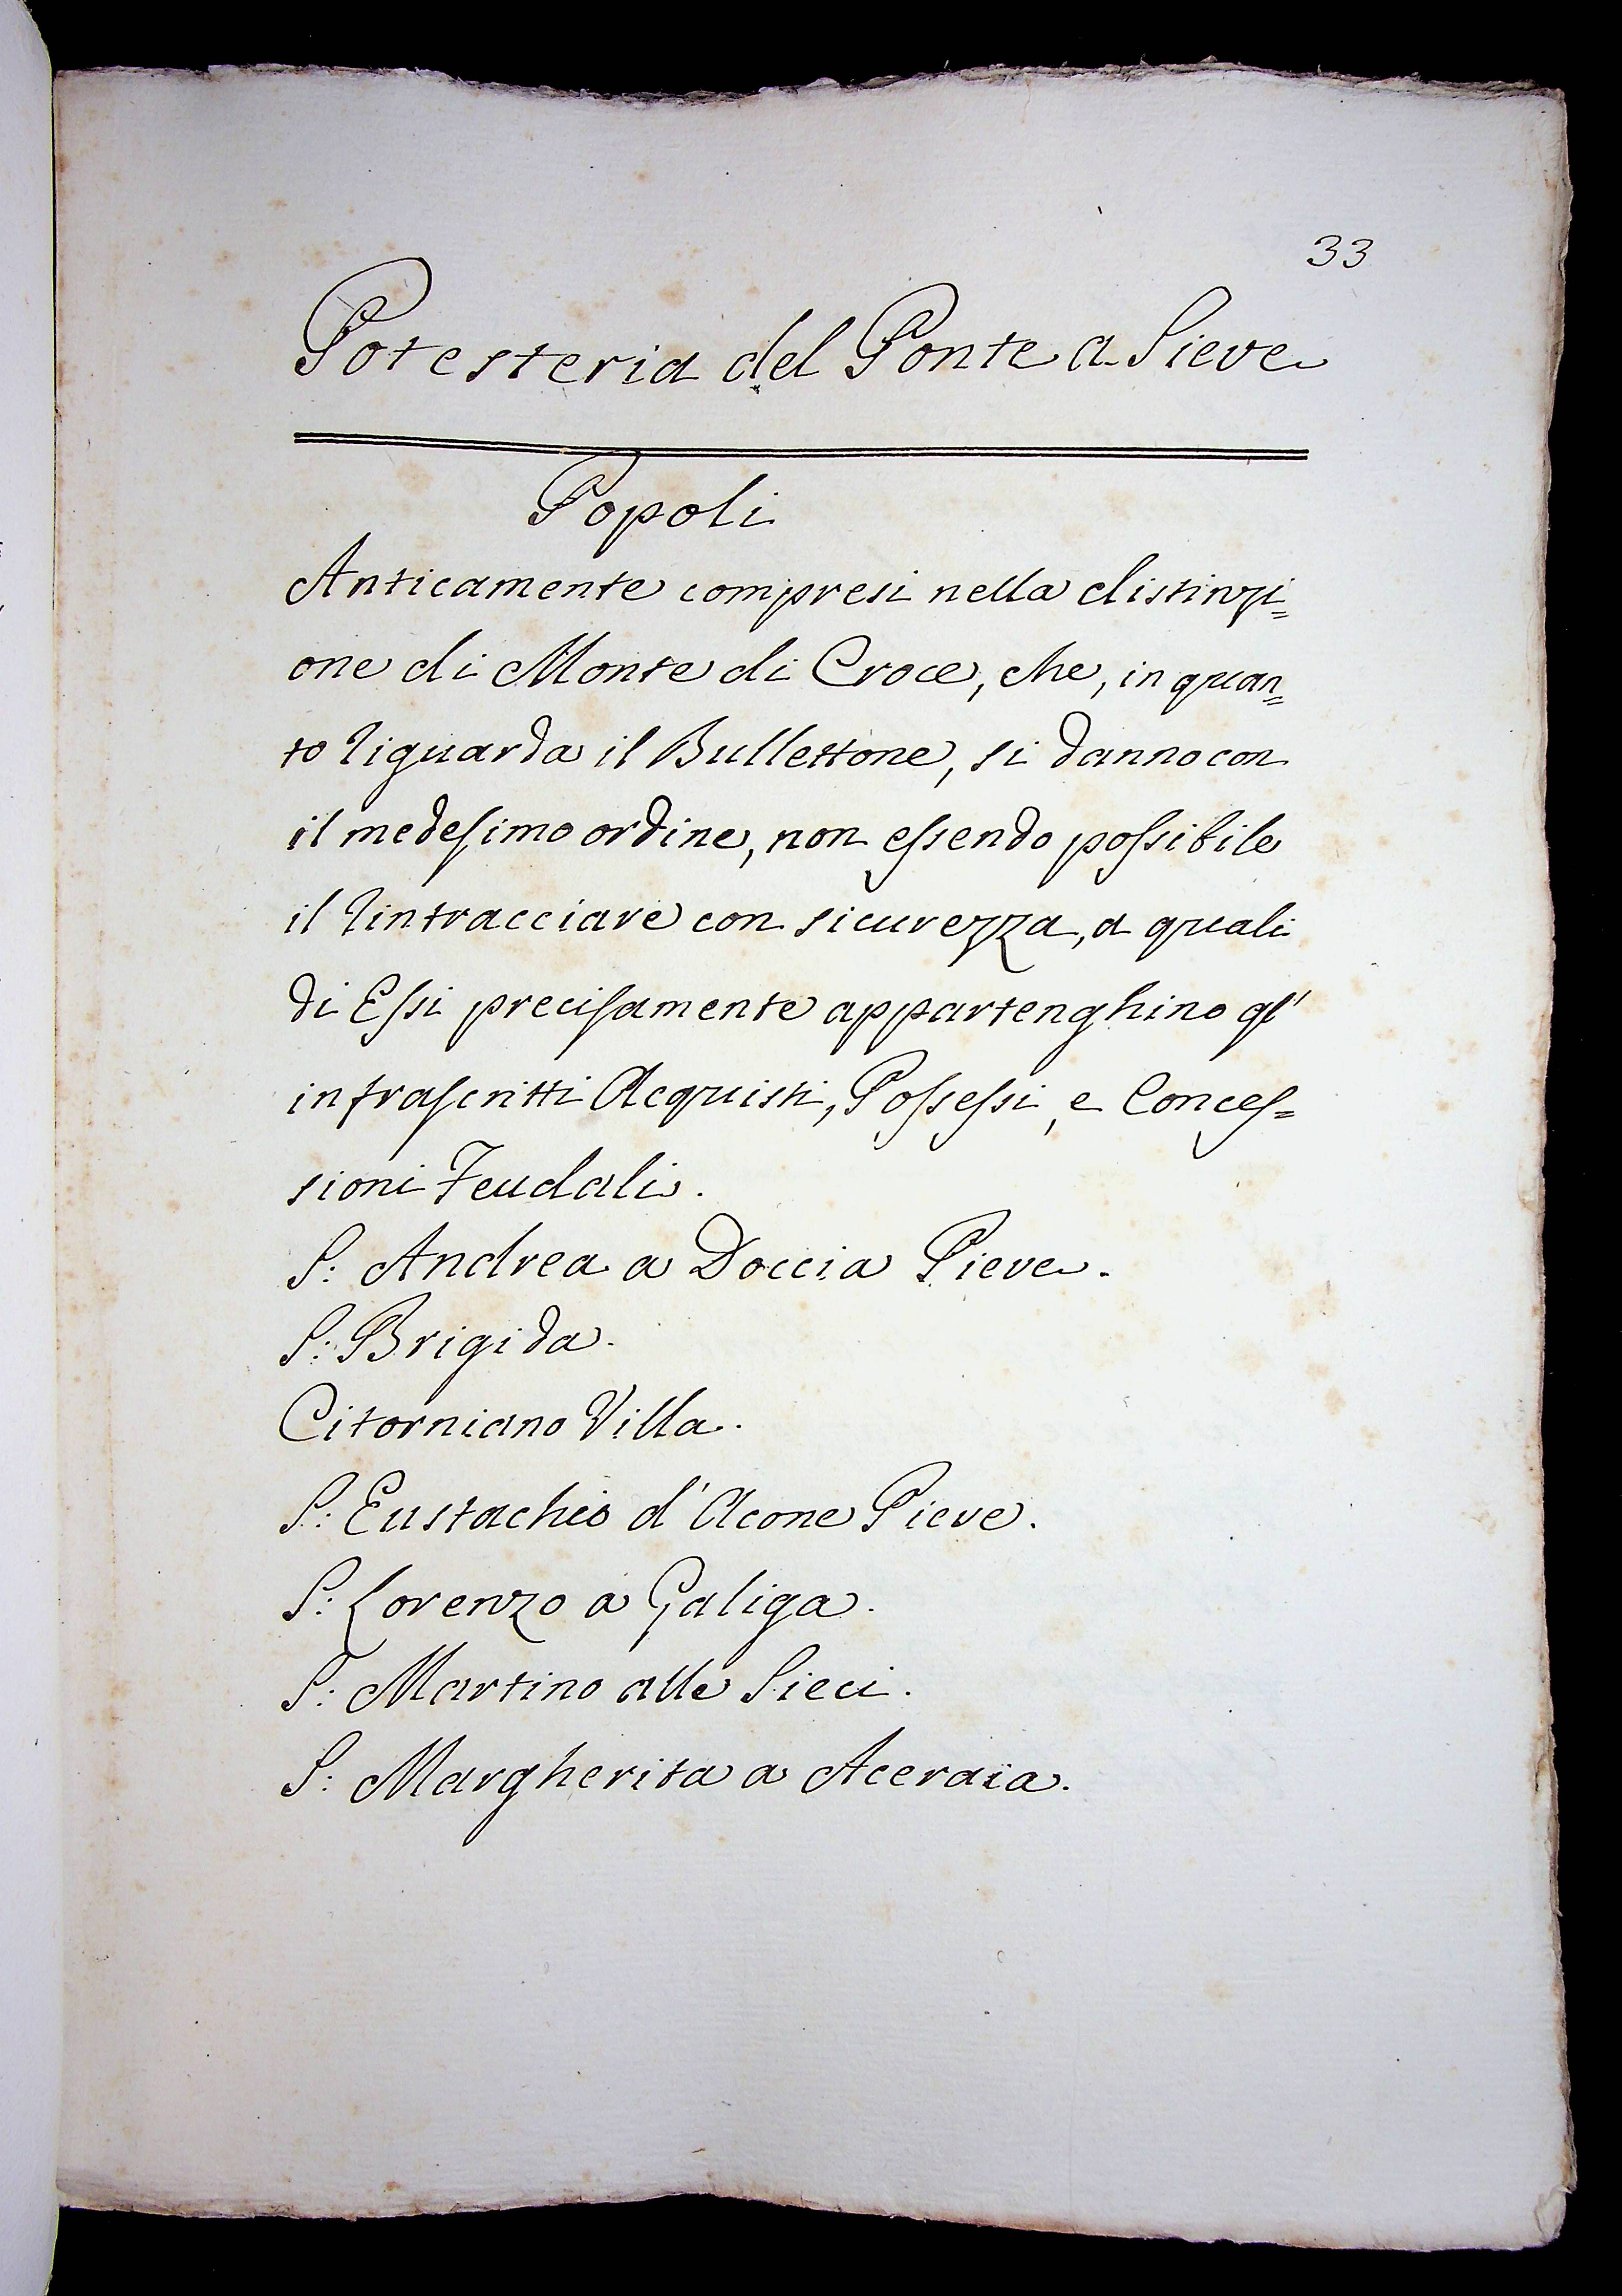 33
Potesteria del Ponte a Sieve
Popoli
Anticamente compresi nella distinzi=
one di Monte di Croce, che, in quan=
to riguarda il Bullettone, si danno con
il medesimo ordine, non essendo possibile
il rintracciare con sicurezza, a quali
di Essi precisamente appartenghino gl'
infrascritti Acquisti, Possessi, e Conces=
sioni Feudali.
S: Andrea a Doccia Pieve.
S: Brigida.
Citorniano Villa.
S: Eustachio d'Acone Pieve.
S: Lorenzo a Galiga.
S: Martino alle Sieci.
S: Margherita a Aceraia.